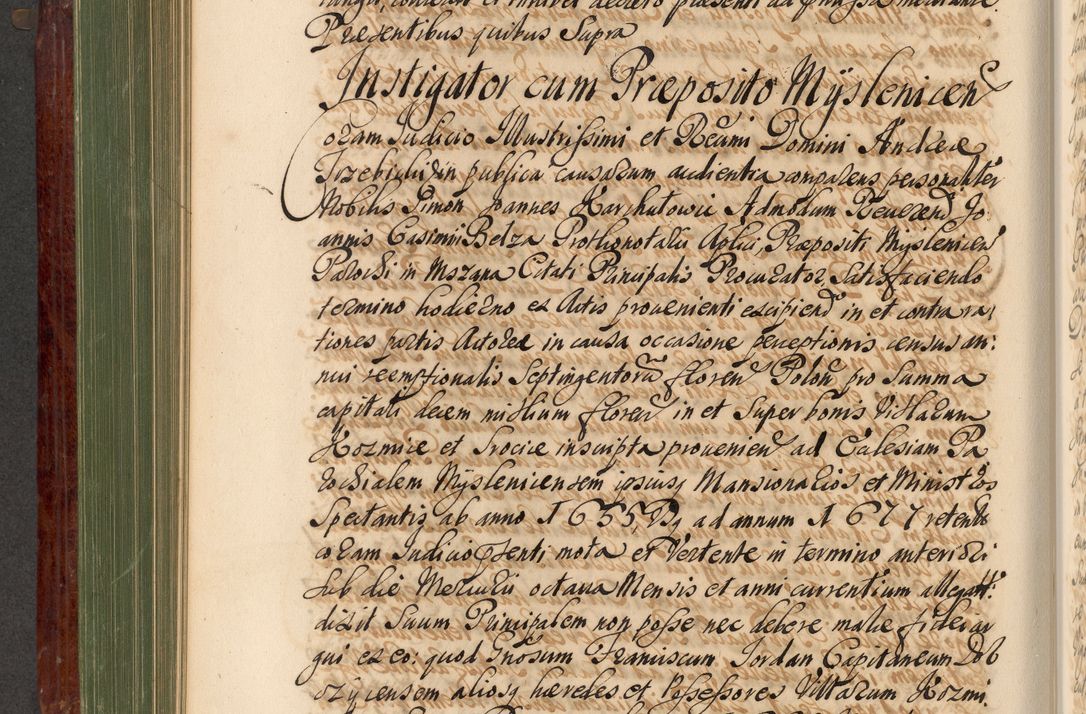 Præsentibus quibus Supra
Instigator cum Præposito Myslenicen
Coram Judicio Illustrissimi et Rēumi Domini Andreæ
Trzebicki in publica causarum audientia comparens personaliter
Nobilis Simon Joannes Karchutowic Admodum Reverend Jo
annis Casimiri Belza Prothonotarii Aplici, Præpositi Myslenicen
Parochi in Mszana Citati Principalis Procurator, Satisfaciendo
termino hodierno ex Actis provenienti excipiend in et contra ra
tiones partis Actoreæ in causa occasione perceptionis census an:
nui reemptionalis Septingentorū floren Polon pro Summa
capitali decem millium floren in et Super bonis Villarum
Kozmice et Srocice inscripta provenien ad Ecclesiam Pa
rochialem Myslenicensem ipsiusq Mansionarios et Ministros
Spectantis, ab anno 1655 ad annum 1677 retent
coram Judicio psenti mota et Vertente in termino anteriori
sub die Mercurii octava Mensis et anni currentium allegatt:
dixit Suum Principalem non posse nec debere malæ fidei ar
gui ex eo: quod Gnosum Franciscum Jordan Capitaneum Dob
czycensem aliosq hæredes et Possessores Villarum Kozmi